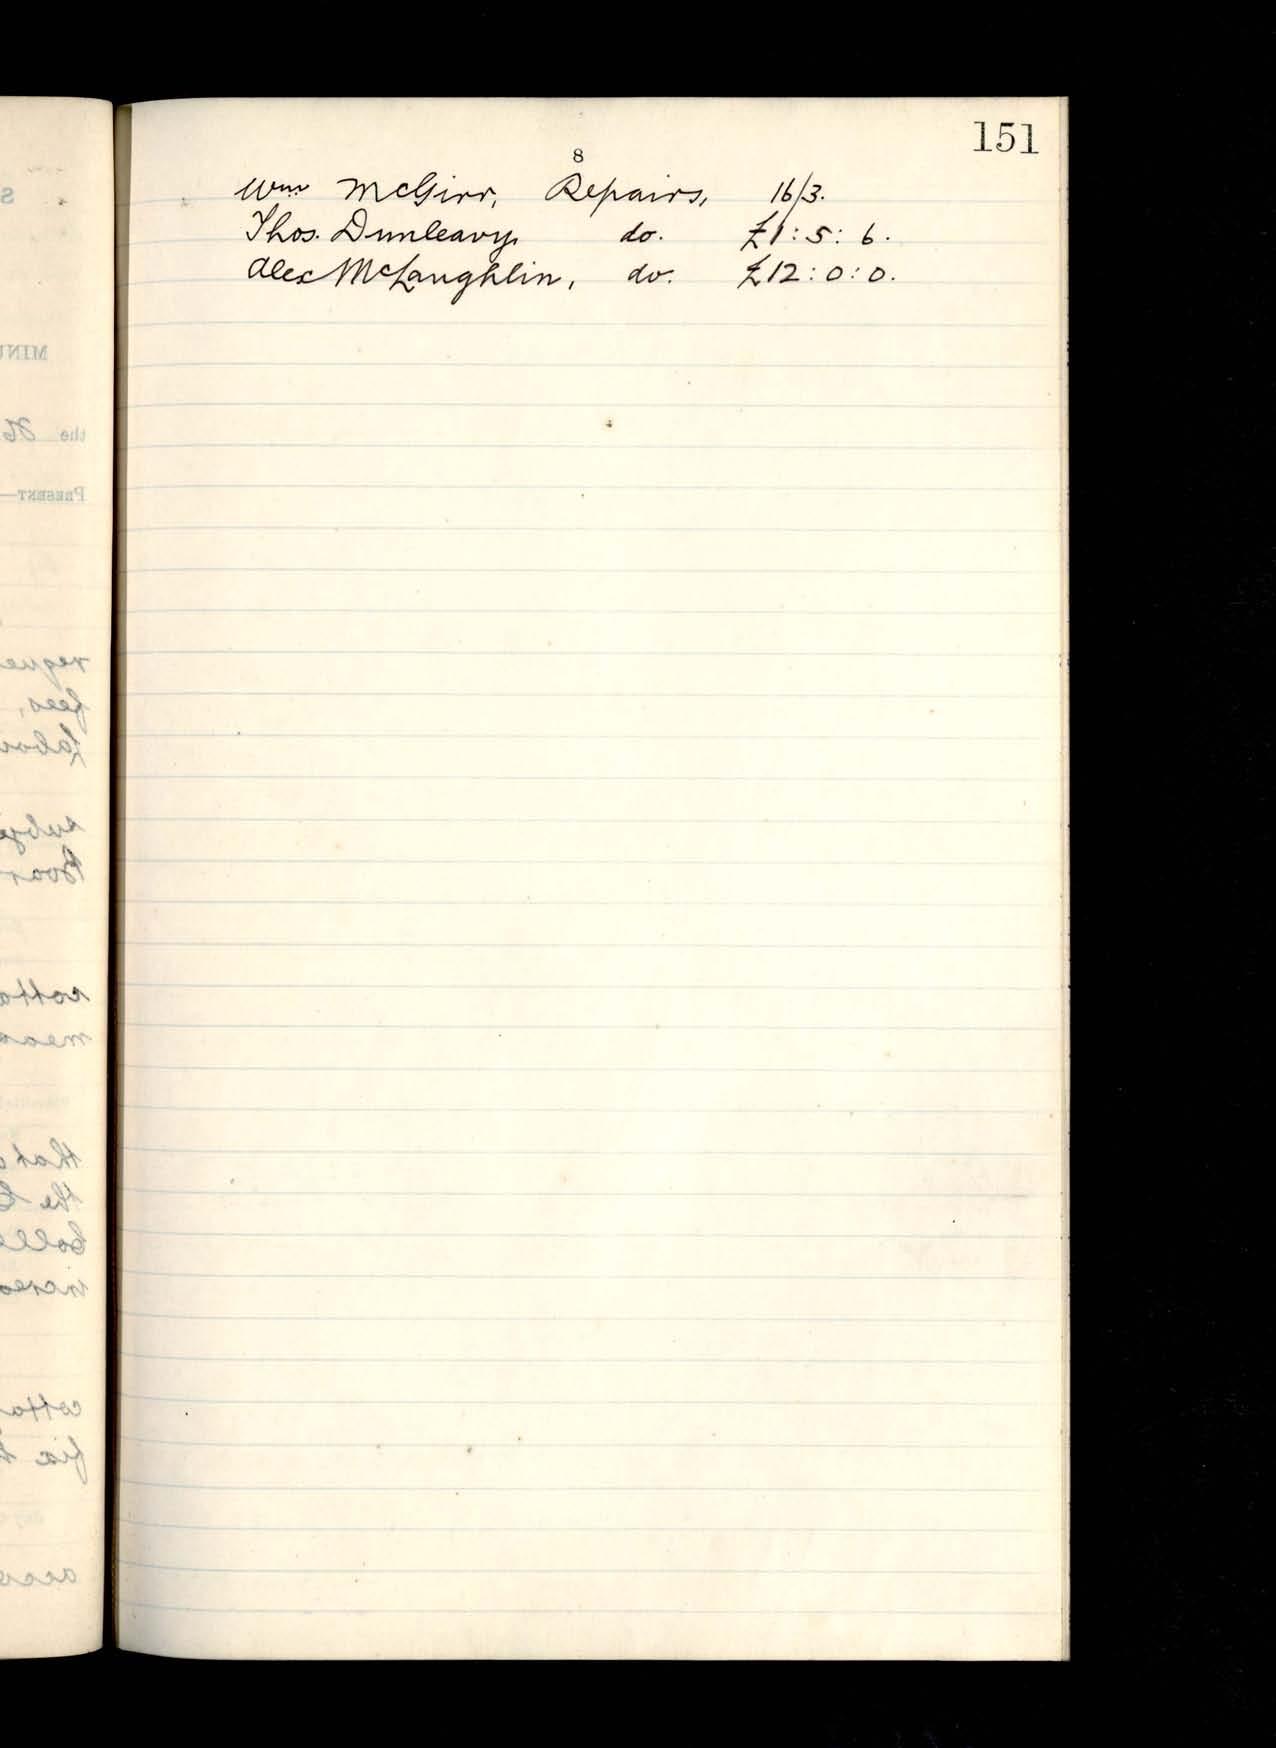 151
8
Wm McGirr, Repairs, 16/3.
Thos. Dunleavy, do. £1:5:6.
Alex McLaughlin, do. £12:0:0.